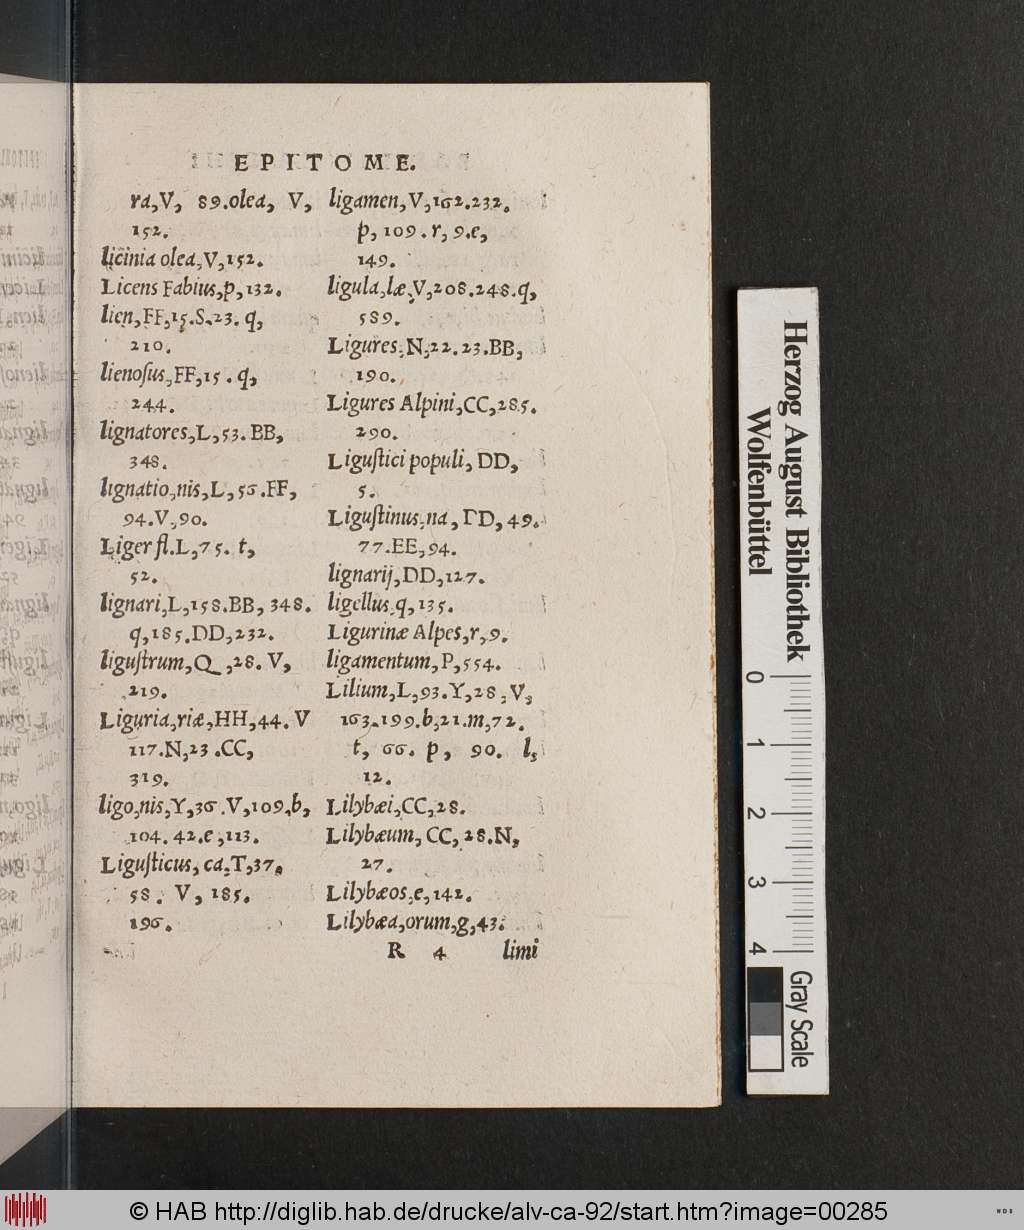 EPITOME.
ra,V, 89.olea, V,
152.
licinia olea,V,152.
Licens Fabius,p,132.
lien,FF,15.S.23. q,
210.
lienoſus,FF,15. q,
244.
lignatores,L,53.BB,
348.
lignatio,nis,L,56.FF,
94.V,90.
Liger fl.L,75. t,
52.
lignari,L,158.BB, 348.
q,185.DD,232.
liguſtrum,Q,28. V,
219.
Liguria,riæ,HH,44. V
117.N,23.CC,
319.
ligo,nis,Y,36.V,109.b,
104. 42.e,113.
Liguſticus, ca,T,37.
58. V, 185.
196.
ligamen,V,162.232.
p, 109. r, 9.e,
149.
ligula,læ,V,208.248.q,
589.
Ligures,N,22.23.BB,
190.
Ligures Alpini,CC,285.
290.
Liguſtici populi, DD,
5.
Liguſtinus,na, DD, 49.
77.EE,94.
lignarij,DD,127.
ligellus,q,135.
Ligurinæ Alpes,r,9.
ligamentum,P,554.
Lilium,L,93.Y,28, V,
163.199.b,21.m,72.
t, 66. p, 90. l,
12.
Lilybæi,CC,28.
Lilybæum, CC, 28.N,
27.
Lilybæos,e,142.
Lilybæa,orum,g,43.
R 4 limi
Herzog August Bibliothek
Wolfenbüttel
0 1 2 3 4
Gray Scale
© HAB http://diglib.hab.de/drucke/alv-ca-92/start.htm?image=00285